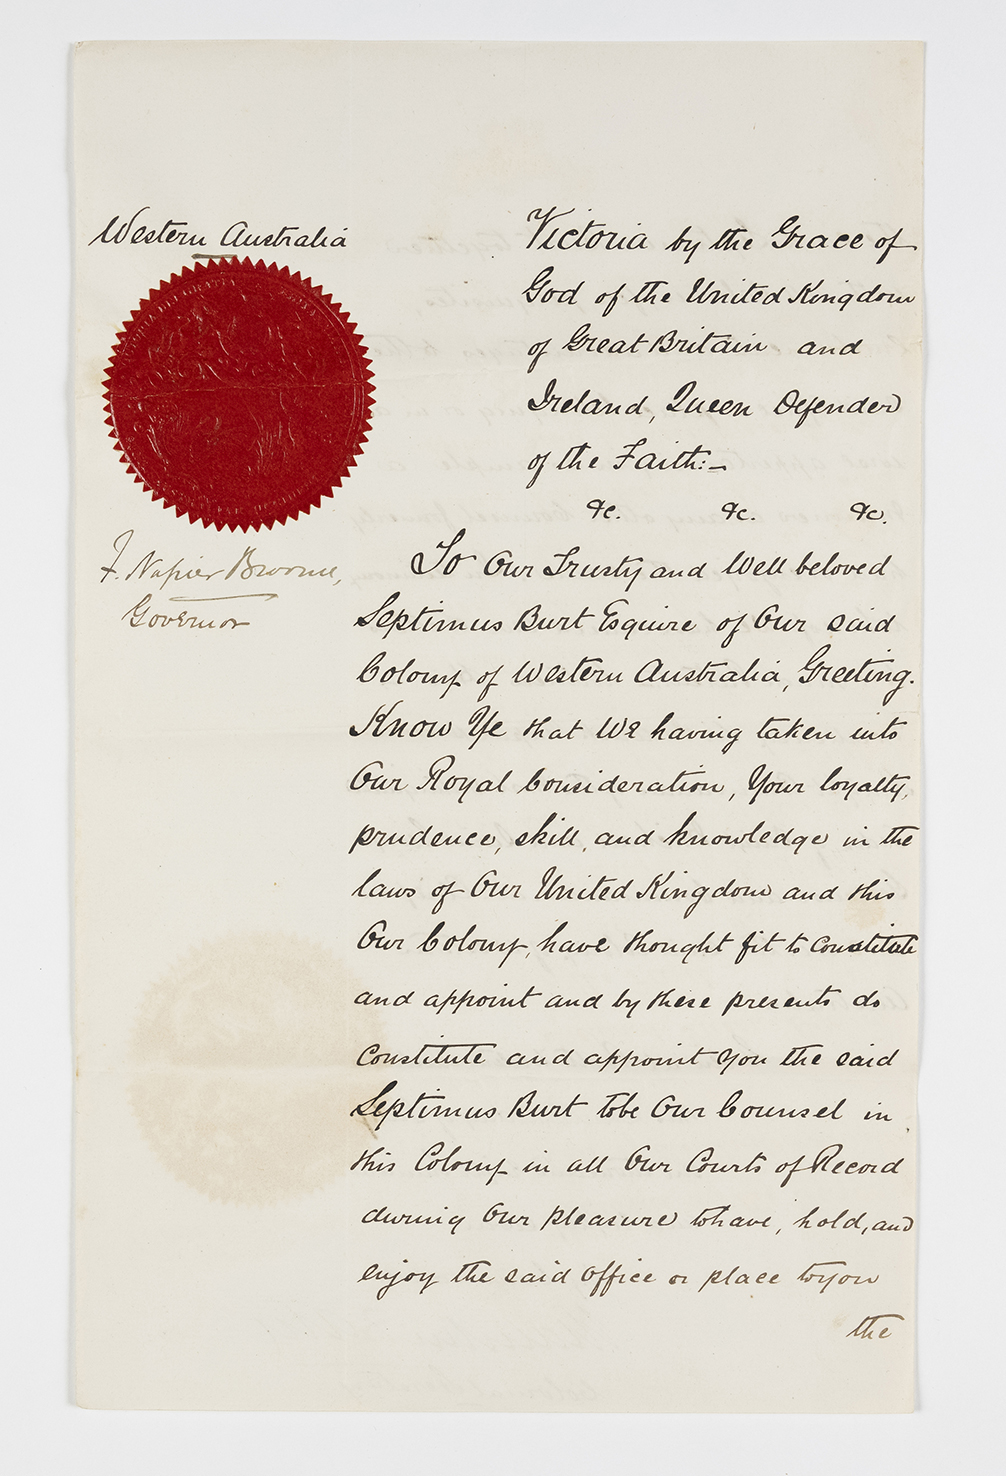 Western Australia
F. Napier Broome,
Governor
Victoria by the Grace of
God of the United Kingdom
of Great Britain and
Ireland, Queen Defender
of the Faith:—
&c. &c. &c.
To Our Trusty and Well beloved
Septimus Burt Esquire of Our said
Colony of Western Australia, Greeting.
Know Ye that We having taken into
Our Royal Consideration, Your loyalty,
prudence, skill, and knowledge in the
laws of Our United Kingdom and this
Our Colony, have thought fit to constitute
and appoint and by these presents do
constitute and appoint you the said
Septimus Burt to be Our Counsel in
this Colony in all Our Courts of Record
during Our pleasure to have, hold, and
enjoy the said office or place to you
the